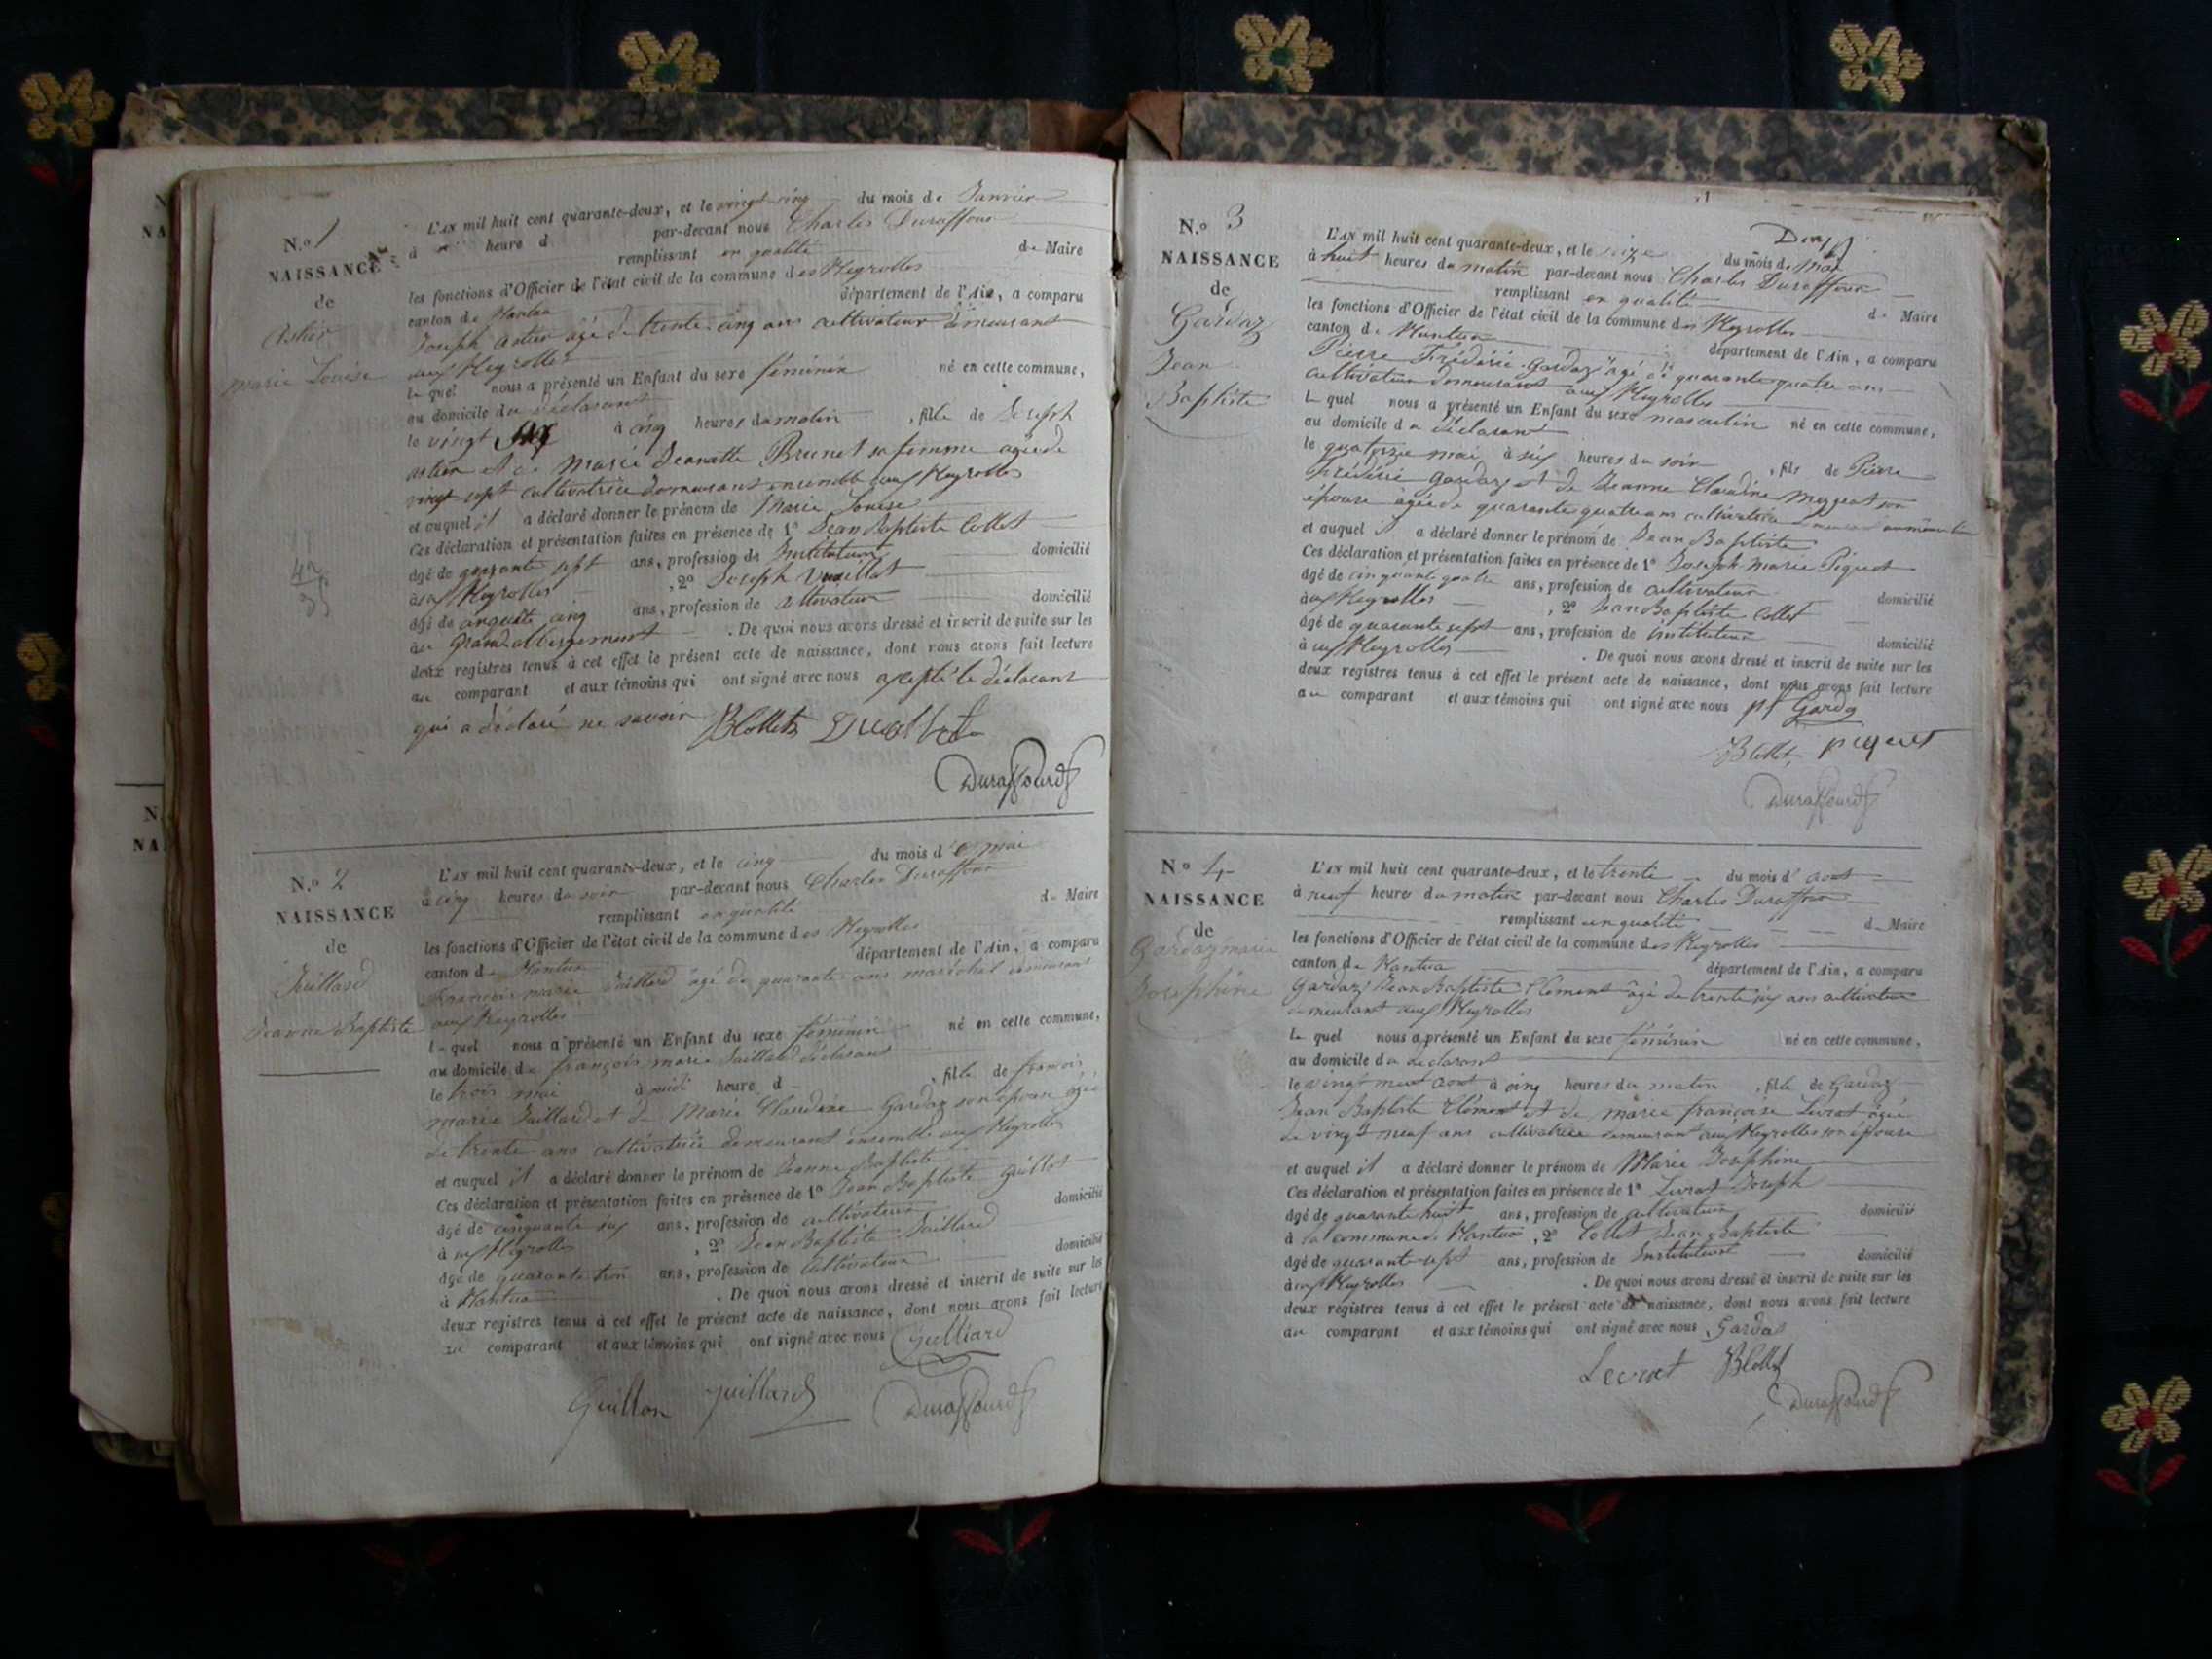 N.º 1
NAISSANCE
de
Astier
Marie Louise
L'AN mil huit cent quarante-deux, et le vingt cinq du mois de Janvier
à heure d par-devant nous Charles Duraffour
remplissant en qualité de Maire
les fonctions d'Officier de l'état civil de la commune des Neyrolles
canton de Nantua département de l'Ain, a comparu
Joseph Astier âgé de trente cinq ans cultivateur demeurant
aux Neyrolles
lequel nous a présenté un Enfant du sexe féminin né en cette commune,
au domicile du déclarant
le vingt à cinq heures du matin, fille de Joseph
astier et de Marie Jeanette Brunet sa femme agée de
vingt sept cultivatrice demeurant ensemble aux Neyrolles
et auquel il a déclaré donner le prénom de Marie Louise
Ces déclaration et présentation faites en présence de 1º Jean Baptiste Collet
âgé de quarante sept ans, profession de Instituteur domicilié
à aux Neyrolles, 2º Joseph Vuaillat
âgé de cinquante cinq ans, profession de cultivateur domicilié
au Grand abergement. De quoi nous avons dressé et inscrit de suite sur les
deux registres tenus à cet effet le présent acte de naissance, dont nous avons fait lecture
au comparant et aux témoins qui ont signé avec nous excepté le déclarant
qui a déclaré ne savoir JBCollet
Duraffourd
N.º 2
NAISSANCE
de
Juillard
Jeanne Baptiste
L'AN mil huit cent quarante-deux, et le cinq du mois de mai
à cinq heures du soir par-devant nous Charles Duraffour
remplissant en qualité de Maire
les fonctions d'Officier de l'état civil de la commune des Neyrolles
canton de Nantua département de l'Ain, a comparu
François marie Juillard âgé de quarante ans maréchal demeurant
aux Neyrolles
lequel nous a présenté un Enfant du sexe féminin né en cette commune,
au domicile de françois marie Juillard déclarant
le trois mai à midi heure d, fille de françois
marie Juillard et de Marie Claudine Gardaz son épouse agée
de trente ans cultivatrice demeurant ensemble aux Neyrolles
et auquel il a déclaré donner le prénom de Jeanne Baptiste
Ces déclaration et présentation faites en présence de 1º Jean Baptiste
âgé de cinquante six ans, profession de cultivateur domicilié
à aux Neyrolles, 2º Jean Baptiste Juillard
âgé de quarante trois ans, profession de cultivateur domicilié
à Nantua. De quoi nous avons dressé et inscrit de suite sur les
deux registres tenus à cet effet le présent acte de naissance, dont nous avons fait lecture
au comparant et aux témoins qui ont signé avec nous
Juillard Duraffourd
N.º 3
NAISSANCE
de
Gardaz
Jean
Baptiste
L'AN mil huit cent quarante-deux, et le seize du mois de Mai
à huit heures du matin par-devant nous Charles Duraffour
remplissant en qualité de Maire
les fonctions d'Officier de l'état civil de la commune des Neyrolles
canton de Nantua département de l'Ain, a comparu
Pierre Frédéric Gardaz âgé de quarante quatre ans
cultivateur demeurant aux Neyrolles
lequel nous a présenté un Enfant du sexe masculin né en cette commune,
au domicile du déclarant
le quatorze mai à six heures du soir, fils de Pierre
frédéric Gardaz et de Jeanne Claudine son
épouse agée de quarante quatre ans cultivatrice
et auquel il a déclaré donner le prénom de Jean Baptiste
Ces déclaration et présentation faites en présence de 1º Joseph Marie Piquet
âgé de cinquante quatre ans, profession de cultivateur domicilié
à aux Neyrolles, 2º Jean Baptiste Collet
âgé de quarante sept ans, profession de instituteur domicilié
à aux Neyrolles. De quoi nous avons dressé et inscrit de suite sur les
deux registres tenus à cet effet le présent acte de naissance, dont nous avons fait lecture
au comparant et aux témoins qui ont signé avec nous pf Gardaz
JBCollet piquet
Duraffourd
Nº 4
NAISSANCE
de
Gardaz marie
Josephine
L'AN mil huit cent quarante-deux, et le trente du mois d'aout
à neuf heures du matin par-devant nous Charles Duraffour
remplissant en qualité de Maire
les fonctions d'Officier de l'état civil de la commune des Neyrolles
canton de Nantua département de l'Ain, a comparu
Gardaz Jean Baptiste Clément âgé de trente six ans cultivateur
demeurant aux Neyrolles
lequel nous a présenté un Enfant du sexe féminin né en cette commune,
au domicile du déclarant
le vingt neuf aout à cinq heures du matin, fille de Gardaz
Jean Baptiste Clément et de marie françoise Livrat agée
de vingt neuf ans cultivatrice demeurant aux Neyrolles son épouse
et auquel il a déclaré donner le prénom de Marie Josephine
Ces déclaration et présentation faites en présence de 1º Livrat Joseph
âgé de quarante huit ans, profession de cultivateur domicilié
à la commune de Nantua, 2º Collet Jean Baptiste
âgé de quarante sept ans, profession de Instituteur domicilié
à aux Neyrolles. De quoi nous avons dressé et inscrit de suite sur les
deux registres tenus à cet effet le présent acte de naissance, dont nous avons fait lecture
au comparant et aux témoins qui ont signé avec nous Gardaz
Levrat JBCollet
Duraffourd